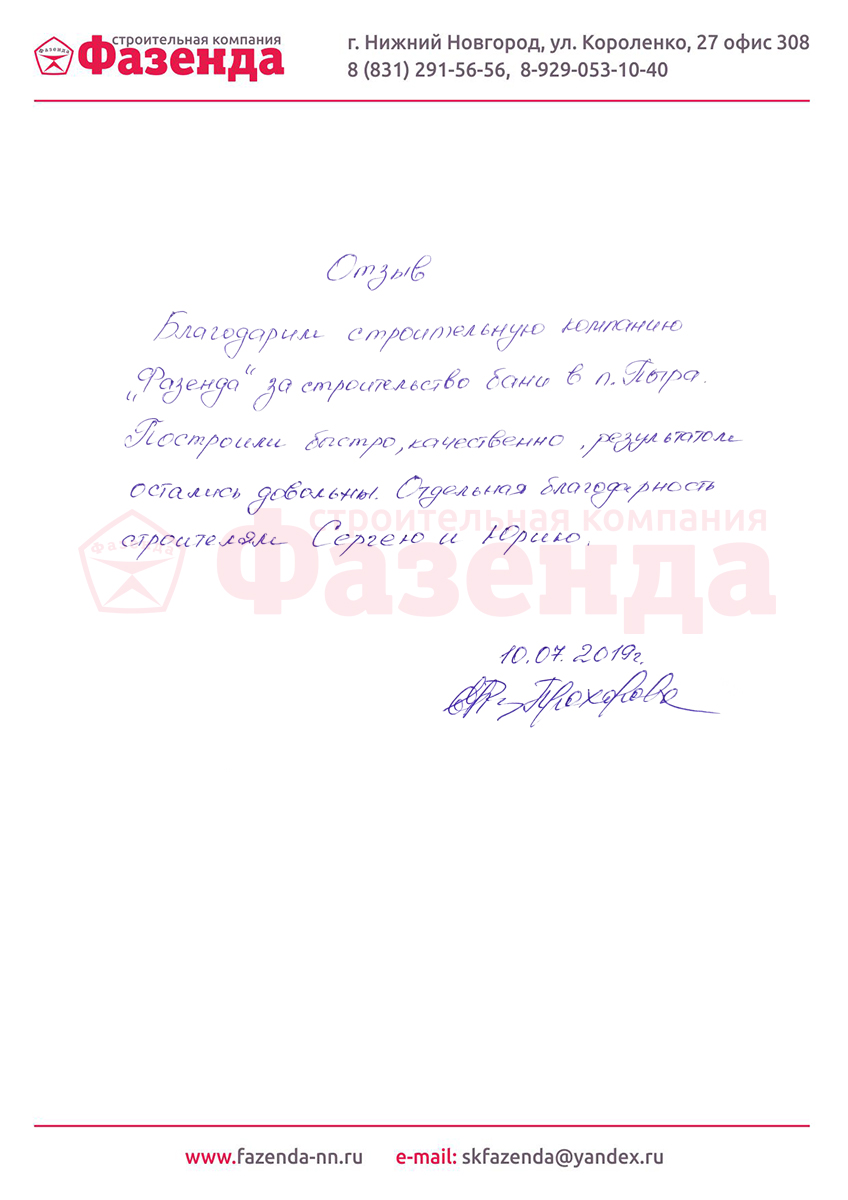 строительная компания
Фазенда
Фазенда
г. Нижний Новгород, ул. Короленко, 27 офис 308
8 (831) 291-56-56, 8-929-053-10-40
Отзыв
Благодарим строительную компанию
„Фазенда“ за строительство бани в п. Пыра.
Построили быстро, качественно, результатом
остались довольны. Отдельная благодарность
строителям Сергею и Юрию.
строительная компания
Фазенда
Фазенда
10.07.2019г.
Прохорова
www.fazenda-nn.ru e-mail: skfazenda@yandex.ru